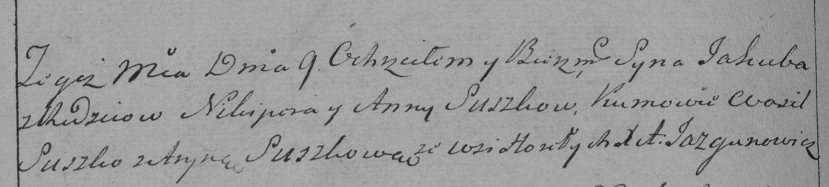 Tegoż Mca Dnia 9 Ochrzciłem y Bierzm. Syna Jakuba
z Rodziców Nikipora y Anny Suszków, Kumowie Wasil
Suszko z Aryną Suszkową ze wsi X. A. Jazgunowicz